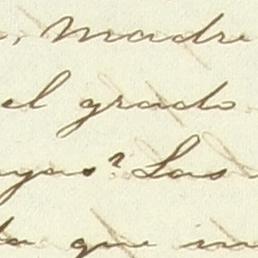 , Madre
el grado
yas? Las
que